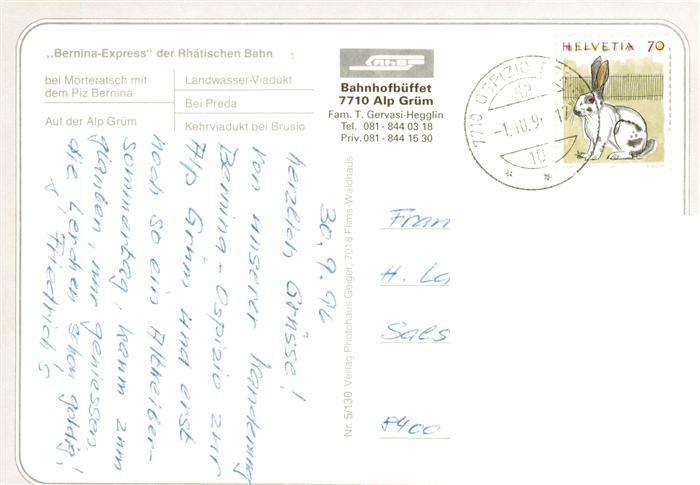 „Bernina-Express" der Rhätischen Bahn
bei Morteratsch mit
dem Piz Bernina
Auf der Alp Grüm
Landwasser-Viadukt
Bei Preda
Kehrviadukt bei Brusio
Bahnhofbüffet
7710 Alp Grüm
Fam. T. Gervasi-Hegglin
Tel. 081 - 844 03 18
Priv. 081 - 844 15 30
HELVETIA 70
7710 OSPIZIO
Nr. 5/130 Verlag Photohaus Geiger, 7018 Flims Waldhaus
30.9.92
herzlich Grüsse!
von unserer Wanderung
Bernina-Ospizio zur
Alp Grüm und erst
noch so ein Altweiber-
sommertag, kaum zum
glauben, nur geniessen.
die Lerchen schon goldig!
Friedrich
Fran
H. La
Sals
8400